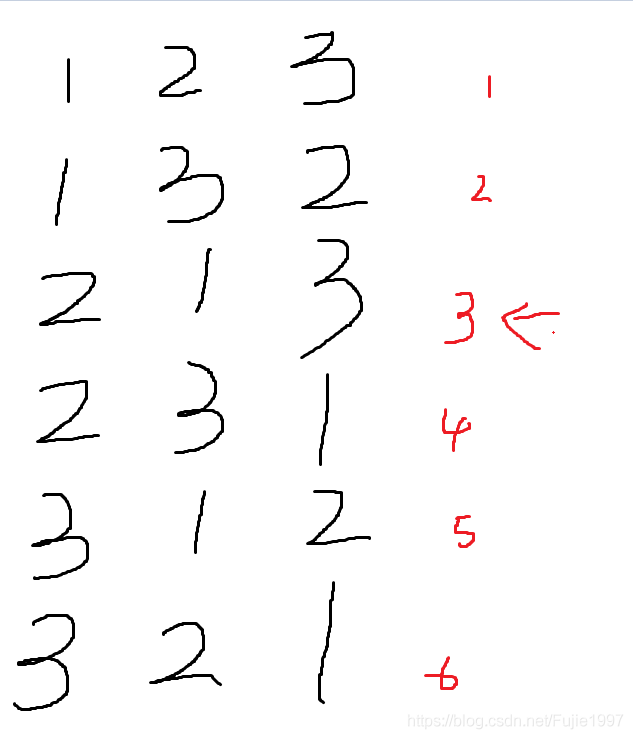 1 2 3 1
1 3 2 2
2 1 3 3 ←
2 3 1 4
3 1 2 5
3 2 1 6
https://blog.csdn.net/Fujie1997